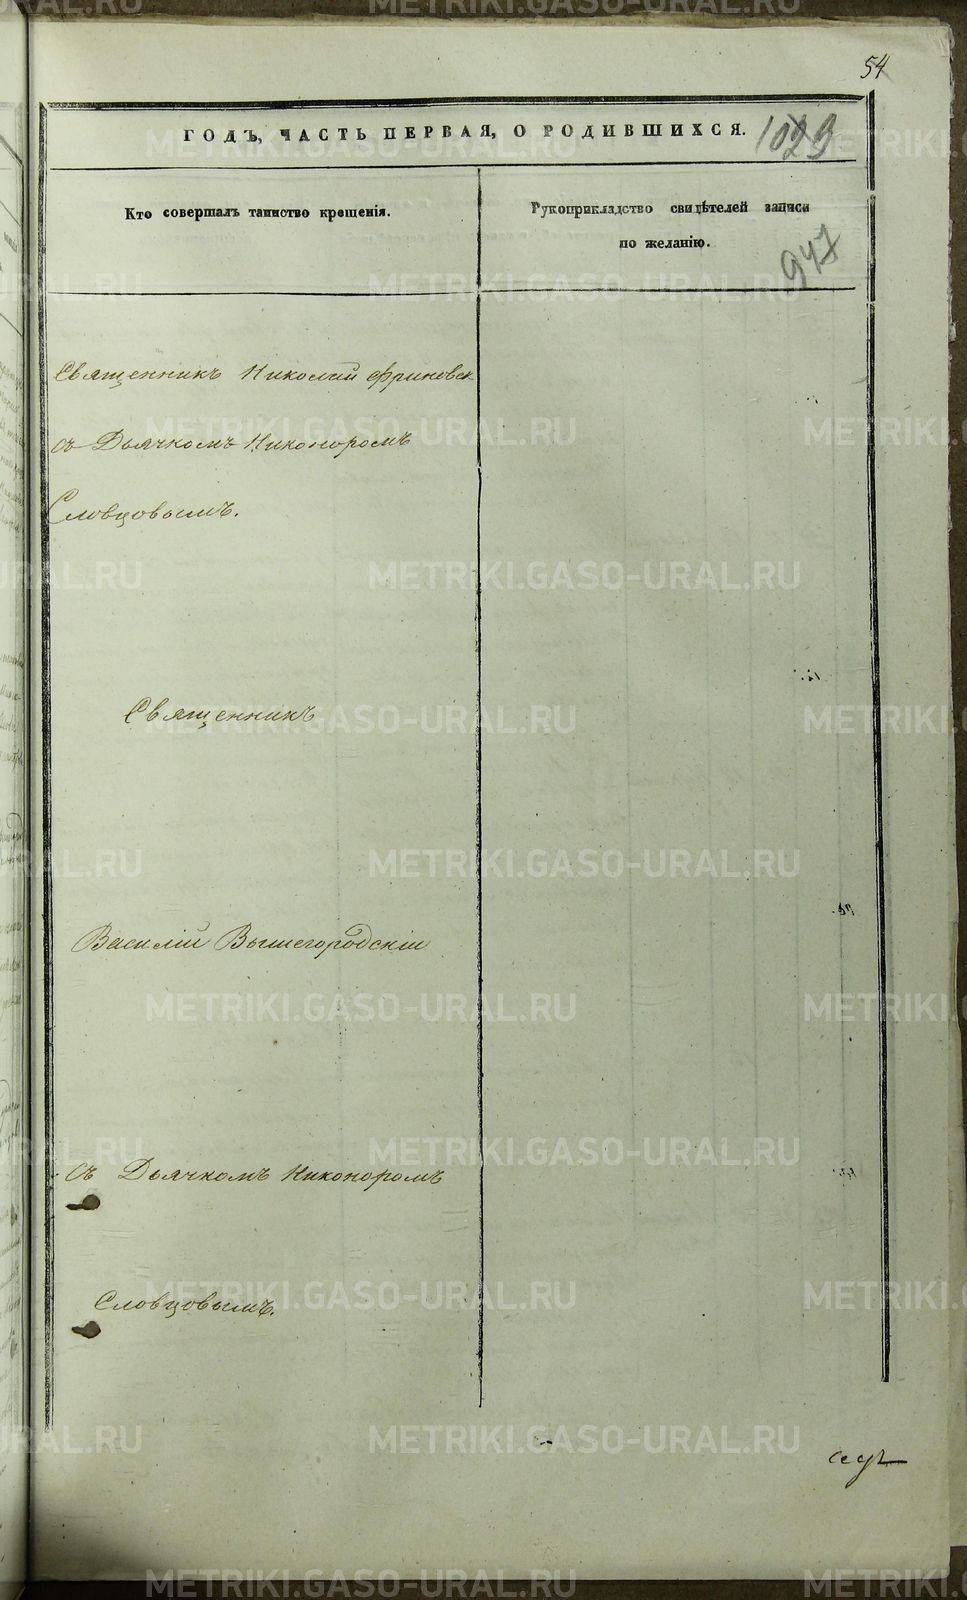 54
ГОДЪ, ЧАСТЬ ПЕРВАЯ, О РОДИВШИХСЯ.
947
Кто совершалъ таинство крещенія.
Рукоприкладство свидѣтелей записи
по желанію.
Священникъ Николай Фриновск
съ Дьячкомъ Никоноромъ
Словцовымъ.
Священникъ
Василій Вышегородскій
съ Дьячкомъ Никоноромъ
Словцовымъ.
METRIKI.GASO-URAL.RU